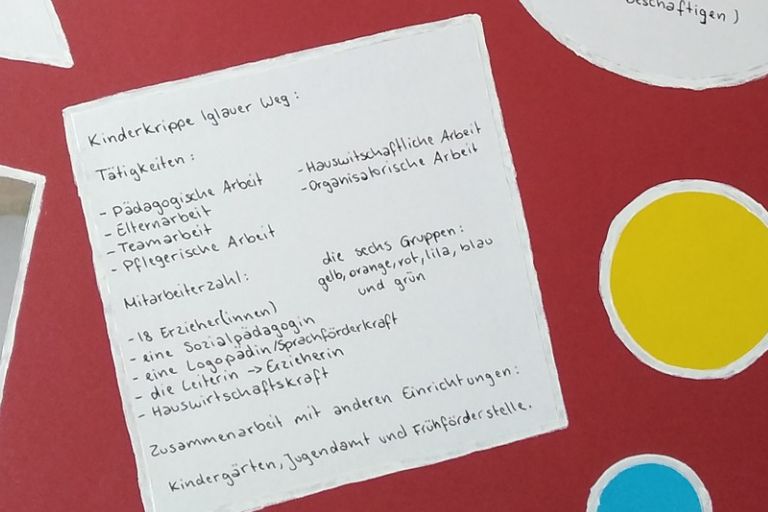 beschäftigen)
Kinderkrippe Iglauer Weg:
Tätigkeiten:
- Pädagogische Arbeit
- Elternarbeit
- Teamarbeit
- Pflegerische Arbeit
- Hauswitschaftliche Arbeit
- Organisatorische Arbeit
die sechs Gruppen:
gelb, orange, rot, lila, blau
und grün
Mitarbeiterzahl:
- 18 Erzieher(innen)
- eine Sozialpädagogin
- eine Logopädin/Sprachförderkraft
- die Leiterin -> Erzieherin
- Hauswirtschaftskraft
Zusammenarbeit mit anderen Einrichtungen:
Kindergärten, Jugendamt und Frühförderstelle.